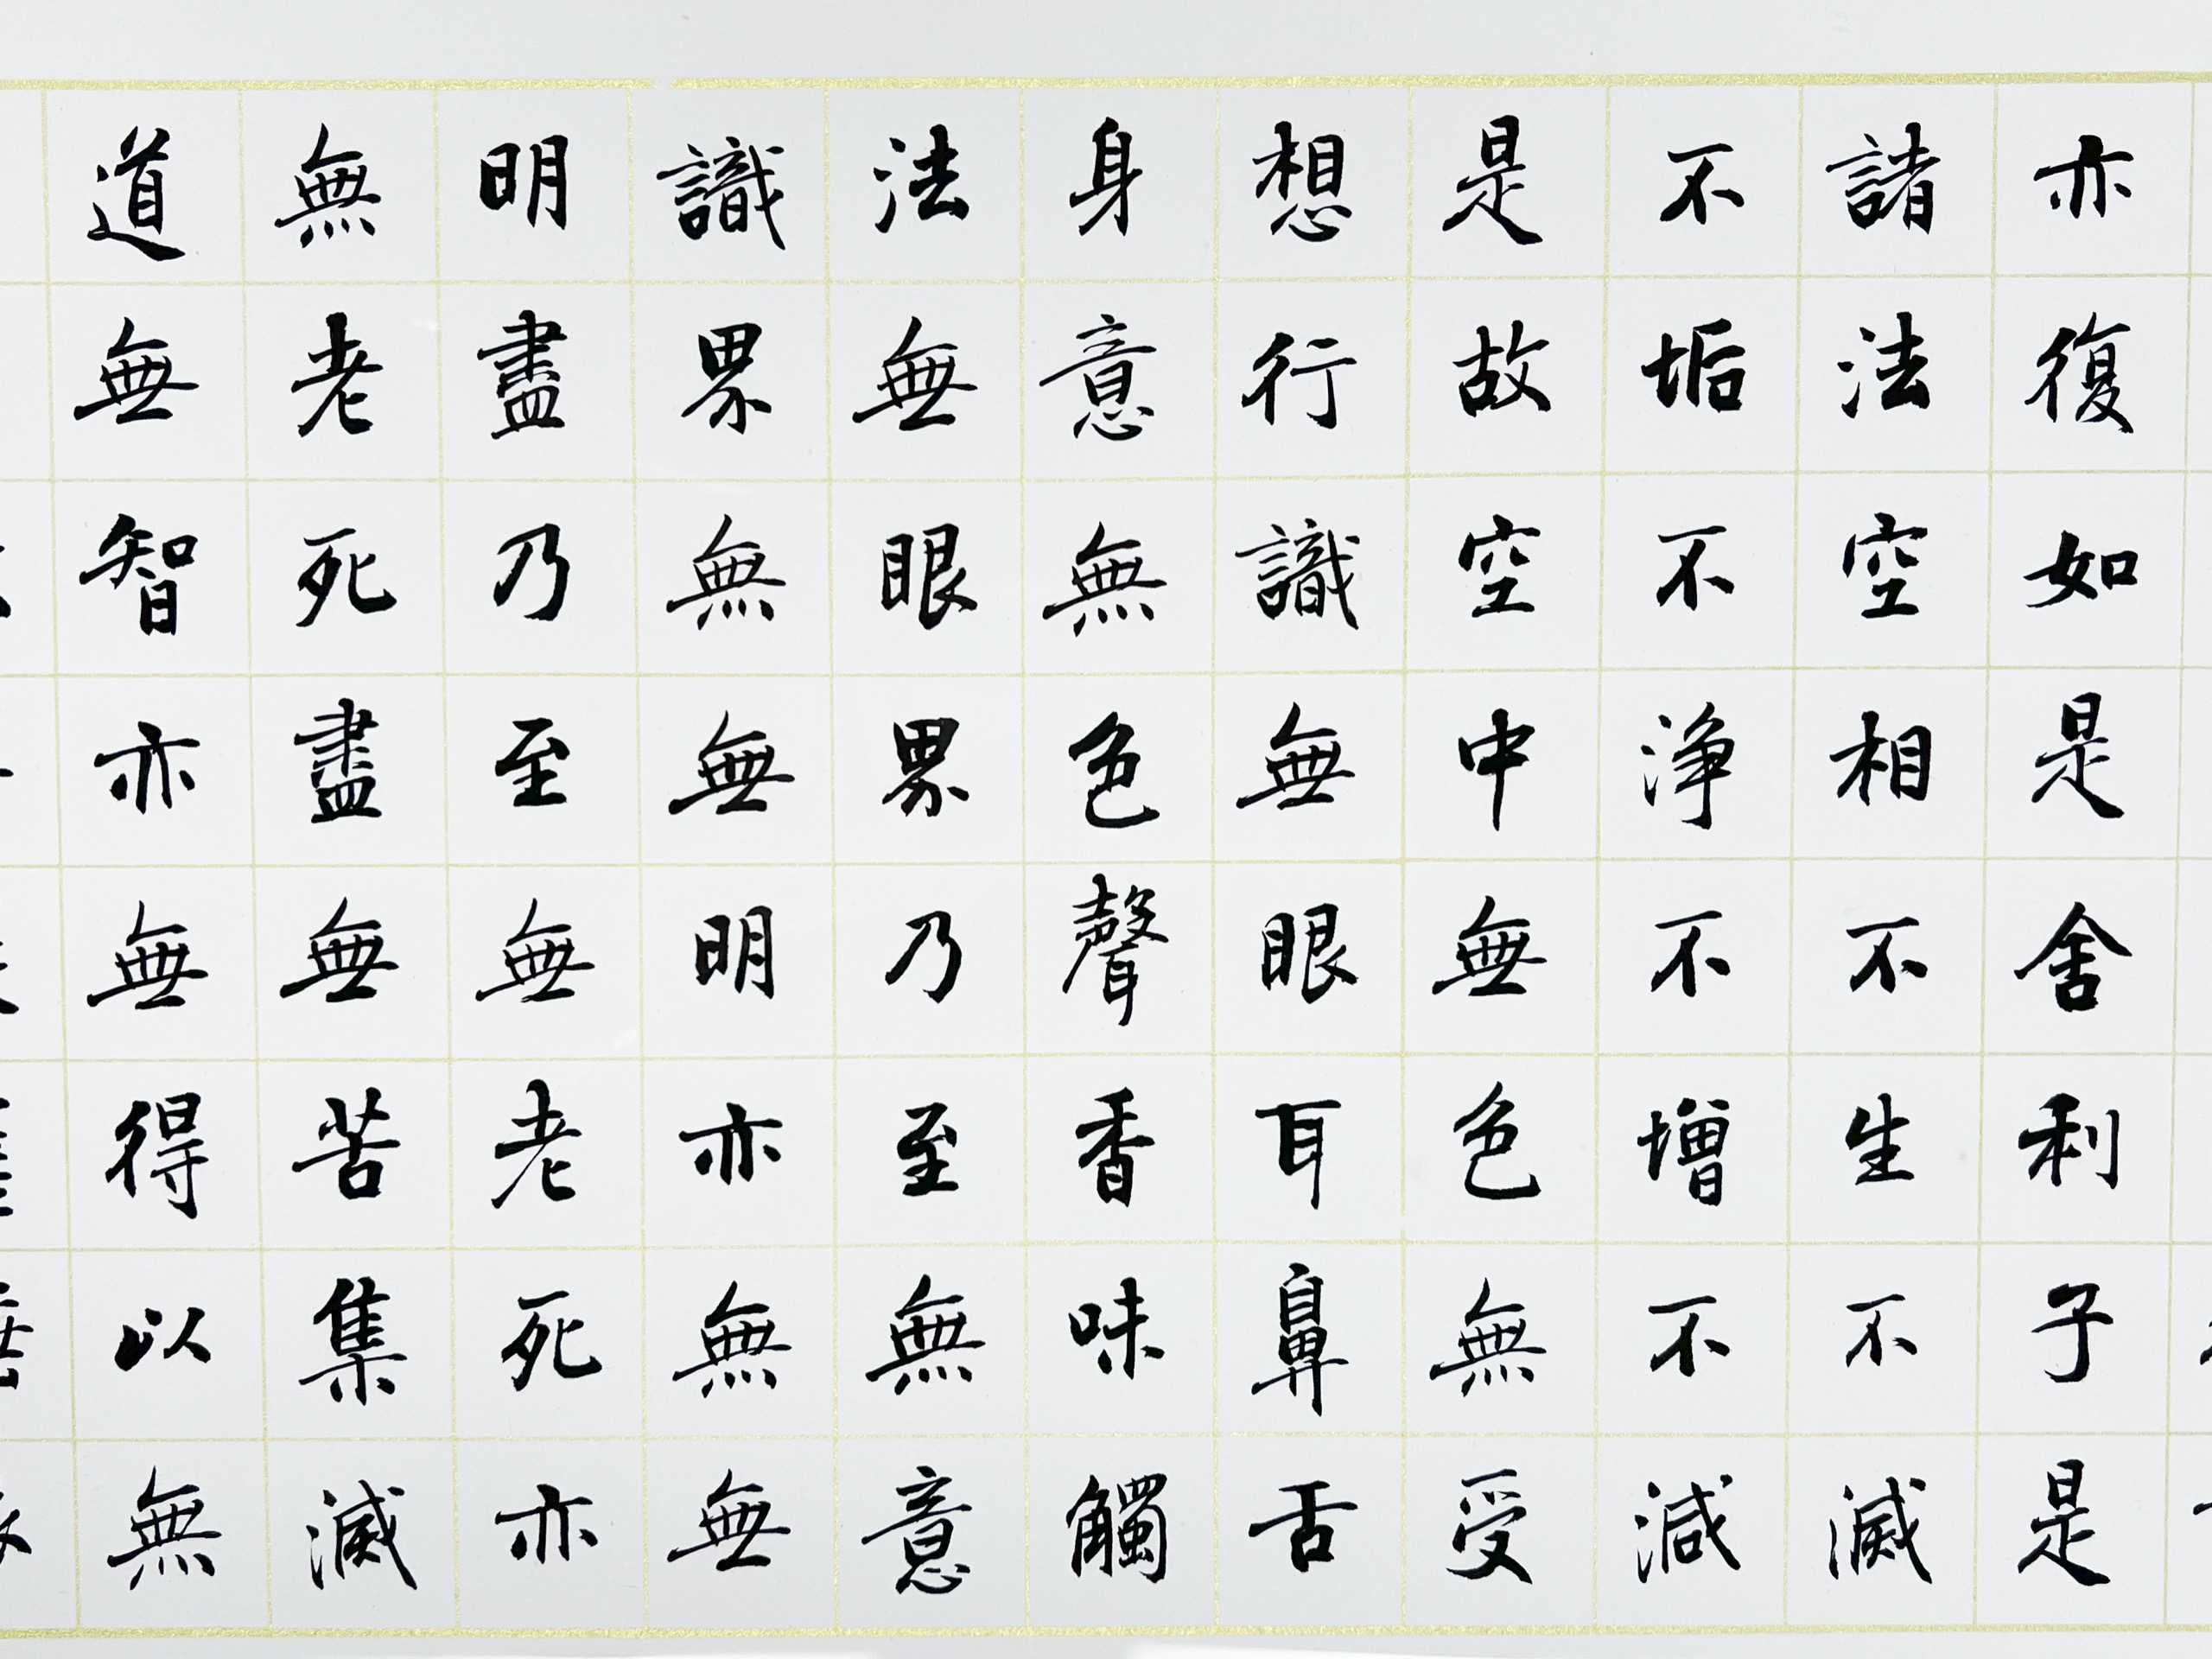 亦復如是舍利子是
諸法空相不生不滅
不垢不淨不增不減
是故空中無色無受
想行識無眼耳鼻舌
身意無色聲香味觸
法無眼界乃至無意
識界無無明亦無無
明盡乃至無老死亦
無老死盡無苦集滅
道無智亦無得以無